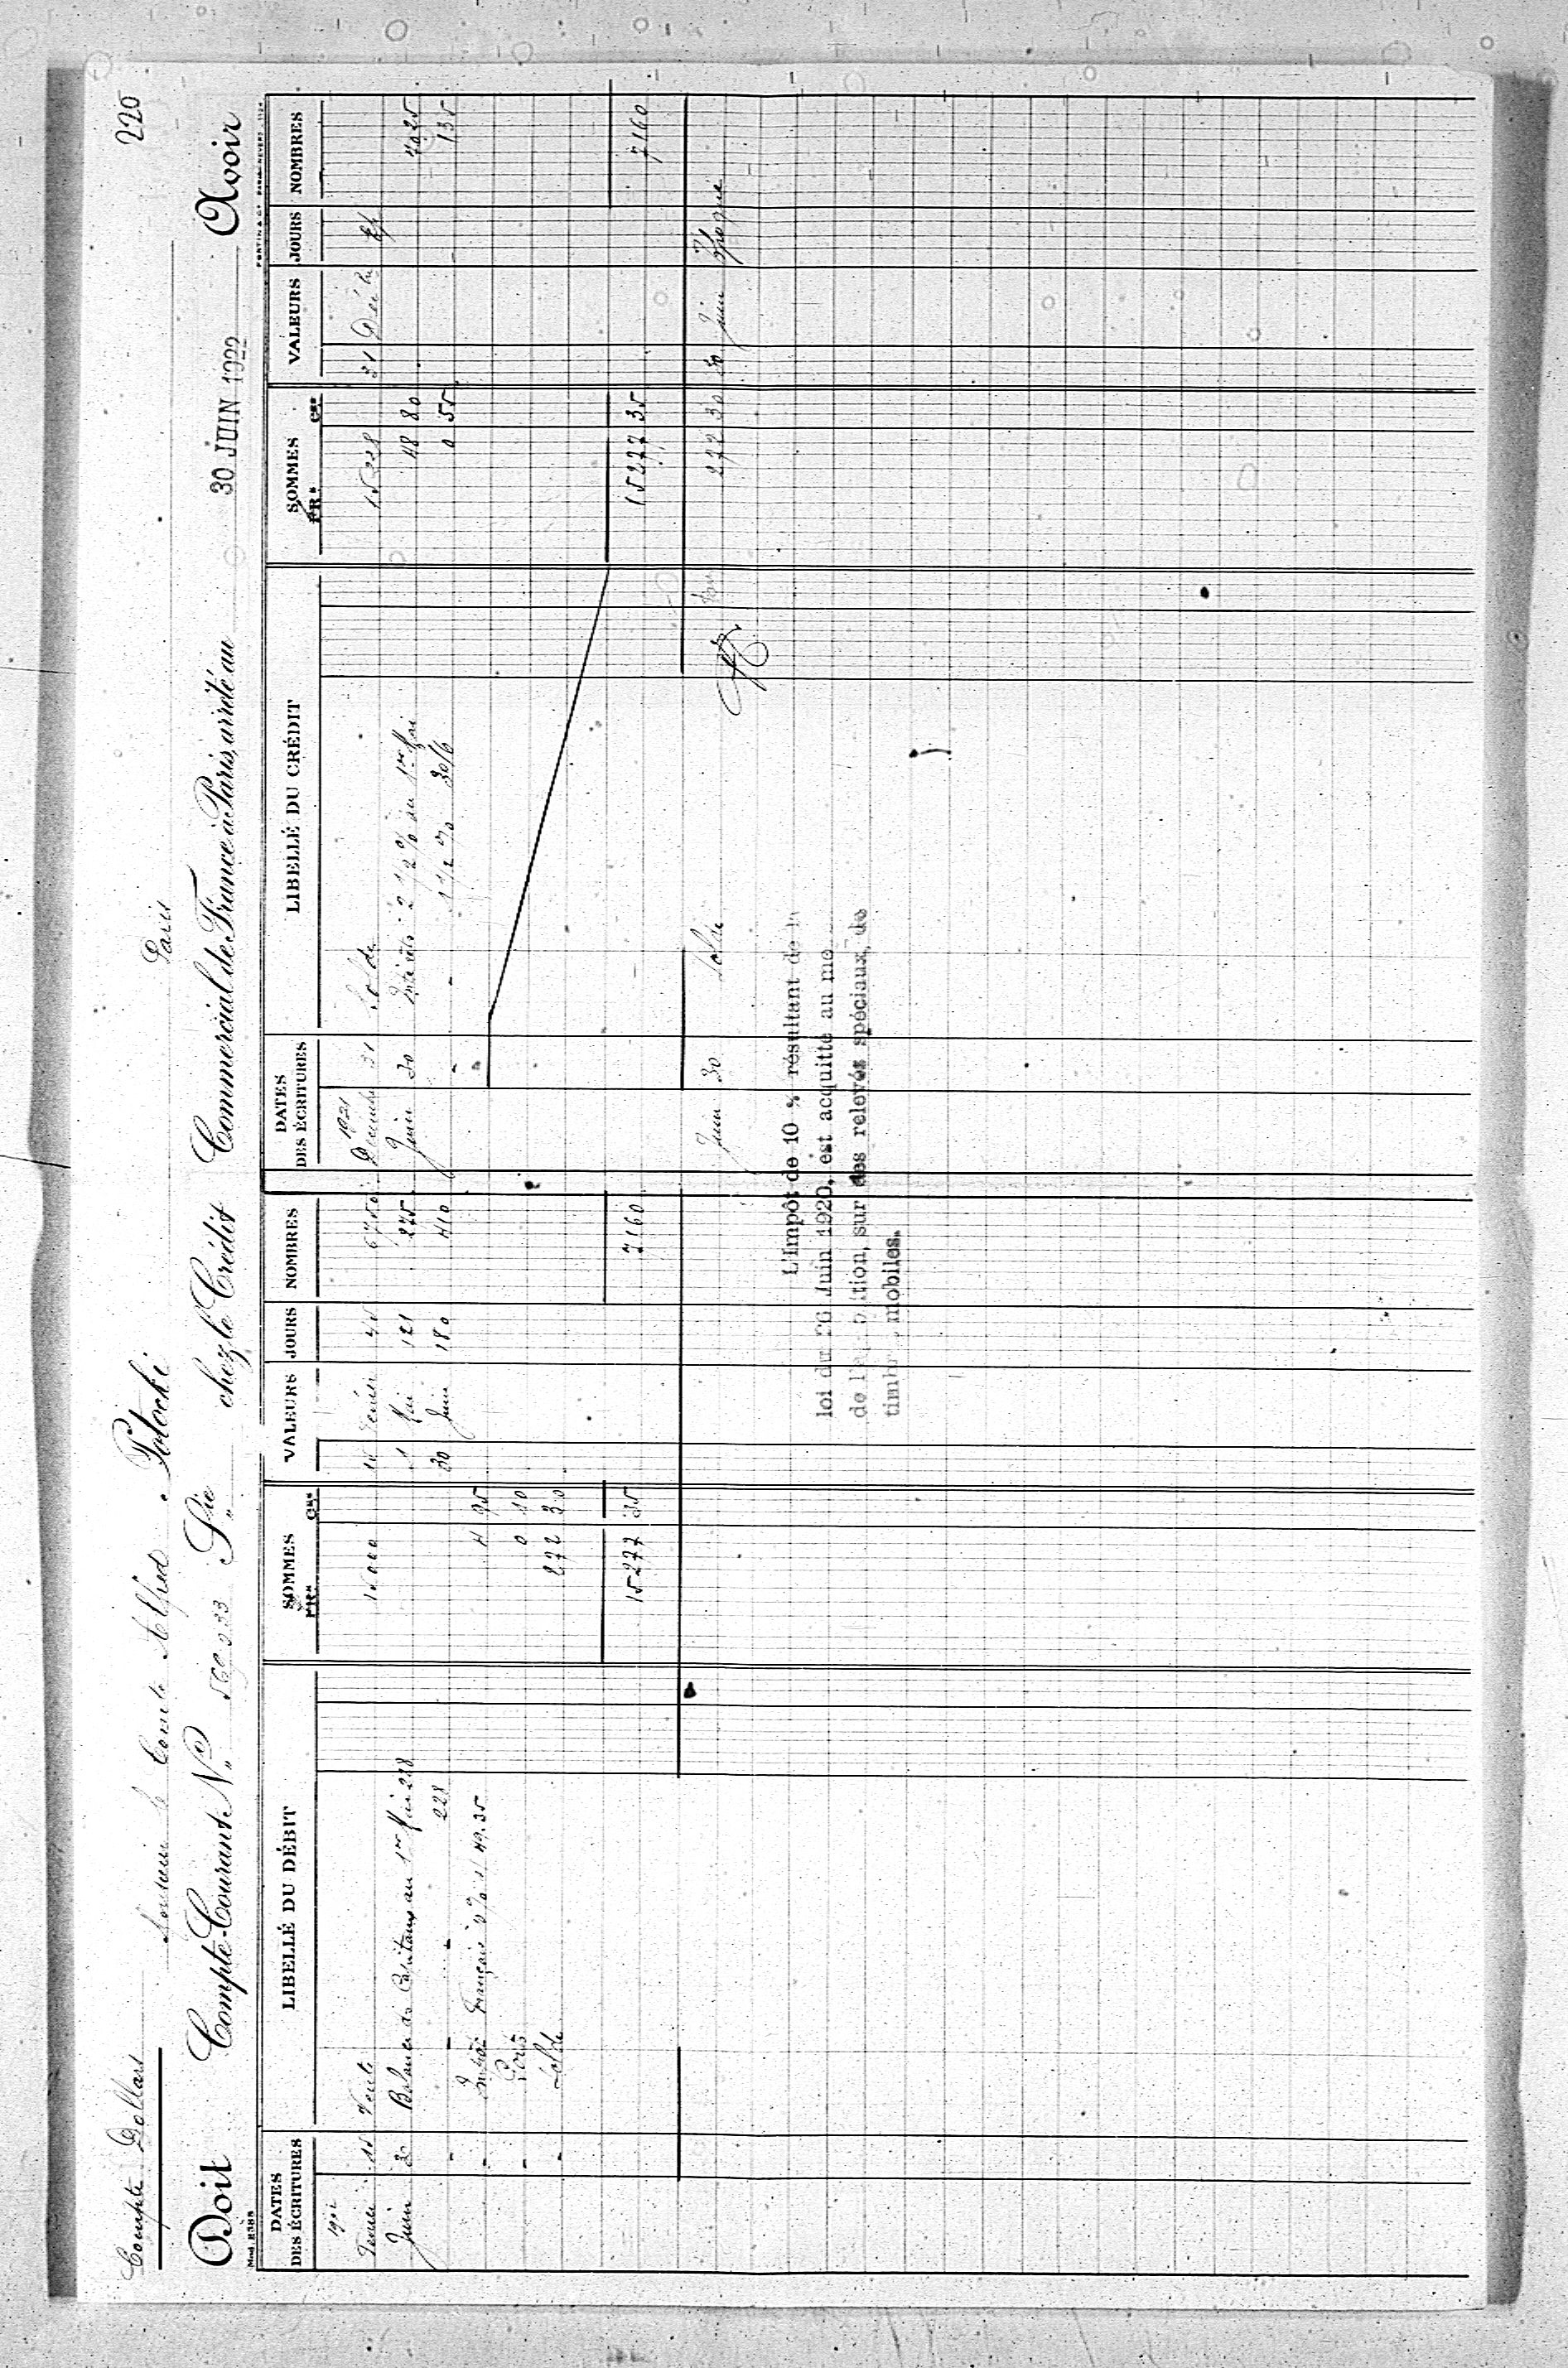 220
Compte Dollars
Monsieur le Comte Alfred Potocki Paris
Doit Compte-Courant No 560233 Sie chez le Crédit Commercial de France à Paris, arrêté au 30 JUIN 1922 Avoir
DATES DES ÉCRITURES LIBELLÉ DU DÉBIT SOMMES FRs Ces VALEURS JOURS NOMBRES DATES DES ÉCRITURES LIBELLÉ DU CRÉDIT SOMMES FRs Ces VALEURS JOURS NOMBRES
1921
15 Vente 15000 6750 31 Solde 15228 31
Juin 30 Balance des Capitaux au 1er Mai 228 1 Mai 121 275 Juin 30 Intérêts 2 1/2 % au 1er Mai 48 80 7025
228 30 Juin 180 410 1 1/2 % 30/6 0 55 135
Impôt Français 49.35 4 95
Ports 0 10
Solde 272 30
15277 35 7160 15277 35 7160
Juin 30 Solde 272 30 30 Juin Epoque
L'Impôt de 10 % résultant de la
loi du 26 Juin 1920, est acquitté au mo
sur des relevés spéciaux, de
mobiles.